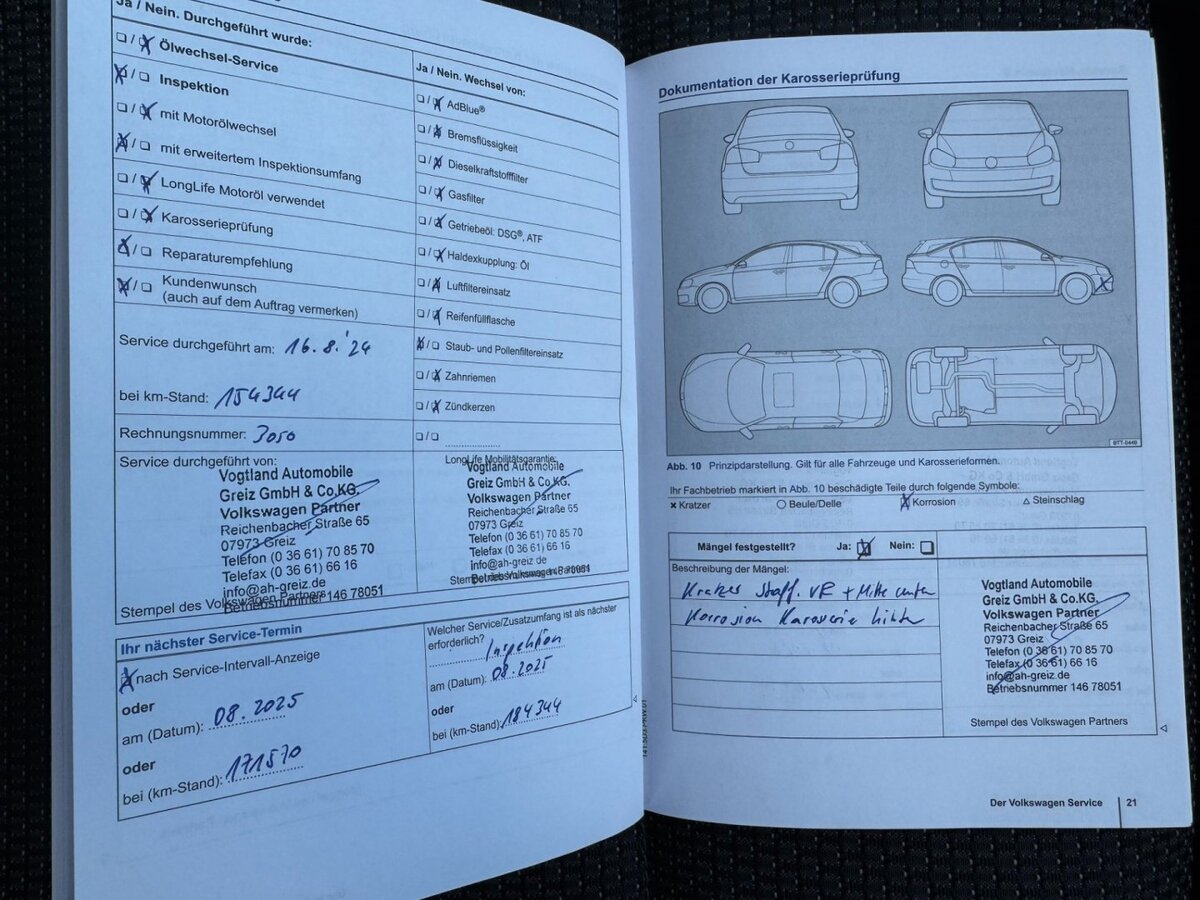 Ja / Nein. Durchgeführt wurde:
❏ / ☒ Ölwechsel-Service
☒ / ❏ Inspektion
❏ / ☒ mit Motorölwechsel
☒ / ❏ mit erweitertem Inspektionsumfang
❏ / ☒ LongLife Motoröl verwendet
❏ / ☒ Karosserieprüfung
☒ / ❏ Reparaturempfehlung
☒ / ❏ Kundenwunsch
(auch auf dem Auftrag vermerken)
Service durchgeführt am: 16.8.'24
bei km-Stand: 154344
Rechnungsnummer: 3050
Service durchgeführt von:
Vogtland Automobile
Greiz GmbH & Co.KG.
Volkswagen Partner
Reichenbacher Straße 65
07973 Greiz
Telefon (0 36 61) 70 85 70
Telefax (0 36 61) 66 16
info@ah-greiz.de
Betriebsnummer 146 78051
Stempel des Volkswagen Partners
Ja / Nein. Wechsel von:
❏ / ☒ AdBlue®
❏ / ☒ Bremsflüssigkeit
❏ / ☒ Dieselkraftstofffilter
❏ / ☒ Gasfilter
❏ / ☒ Getriebeöl: DSG®, ATF
❏ / ☒ Haldexkupplung: Öl
❏ / ☒ Luftfiltereinsatz
❏ / ☒ Reifenfüllflasche
☒ / ❏ Staub- und Pollenfiltereinsatz
❏ / ☒ Zahnriemen
❏ / ☒ Zündkerzen
❏ / ❏
LongLife Mobilitätsgarantie:
Vogtland Automobile
Greiz GmbH & Co.KG.
Volkswagen Partner
Reichenbacher Straße 65
07973 Greiz
Telefon (0 36 61) 70 85 70
Telefax (0 36 61) 66 16
info@ah-greiz.de
Ihr nächster Service-Termin
☒ nach Service-Intervall-Anzeige
oder
am (Datum): 08.2025
oder
bei (km-Stand): 171570
Welcher Service/Zusatzumfang ist als nächster
erforderlich? Inspektion
am (Datum): 08.2025
oder
bei (km-Stand): 184344
Dokumentation der Karosserieprüfung
BTT-0449
Abb. 10 Prinzipdarstellung. Gilt für alle Fahrzeuge und Karosserieformen.
Ihr Fachbetrieb markiert in Abb. 10 beschädigte Teile durch folgende Symbole:
× Kratzer ○ Beule/Delle Korrosion △ Steinschlag
Mängel festgestellt? Ja: ☒ Nein: ❏
Beschreibung der Mängel:
Kratzer Stoßf. VR + Mitte unten
Korrosion Karosserie
Vogtland Automobile
Greiz GmbH & Co.KG.
Volkswagen Partner
Reichenbacher Straße 65
07973 Greiz
Telefon (0 36 61) 70 85 70
Telefax (0 36 61) 66 16
info@ah-greiz.de
Betriebsnummer 146 78051
Stempel des Volkswagen Partners
Der Volkswagen Service 21